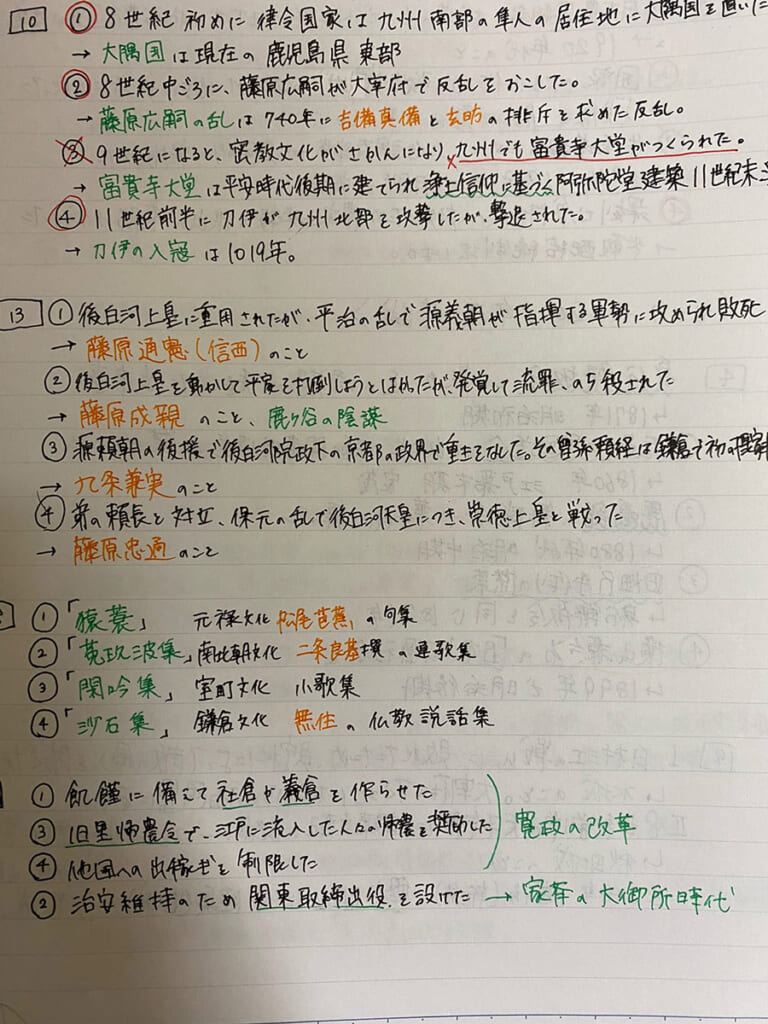 10 ① 8世紀初めに律令国家は九州南部の隼人の居住地に大隅国を置いた
→ 大隅国は現在の鹿児島県東部
② 8世紀中ごろに、藤原広嗣が大宰府で反乱をおこした。
→ 藤原広嗣の乱は740年に吉備真備と玄昉の排斥を求めた反乱。
③ 9世紀になると、密教文化がさかんになり、九州でも富貴寺大堂がつくられた。
→ 富貴寺大堂は平安時代後期に建てられ浄土信仰に基づく阿弥陀堂建築 11世紀末
④ 11世紀前半に刀伊が九州北部を攻撃したが、撃退された。
→ 刀伊の入寇は1019年。
13 ① 後白河上皇に重用されたが、平治の乱で源義朝が指揮する軍勢に攻められ敗死
→ 藤原通憲(信西)のこと
② 後白河上皇を動かして平家を打倒しようとはかったが、発覚して流罪、のち殺された
→ 藤原成親のこと、鹿ヶ谷の陰謀
③ 源頼朝の後援で後白河院政下の京都の政界で重きをなした。その曽孫頼経は鎌倉で初の摂家
→ 九条兼実のこと
④ 弟の頼長と対立、保元の乱で後白河天皇につき、崇徳上皇と戦った
→ 藤原忠通のこと
① 「猿蓑」 元禄文化 松尾芭蕉の句集
② 「菟玖波集」 南北朝文化 二条良基撰の連歌集
③ 「閑吟集」 室町文化 小歌集
④ 「沙石集」 鎌倉文化 無住の仏教説話集
① 飢饉に備えて社倉や義倉を作らせた
③ 旧里帰農令で、江戸に流入した人々の帰農を奨励した 寛政の改革
④ 他国への出稼ぎを制限した
② 治安維持のため関東取締出役を設けた → 家斉の大御所時代